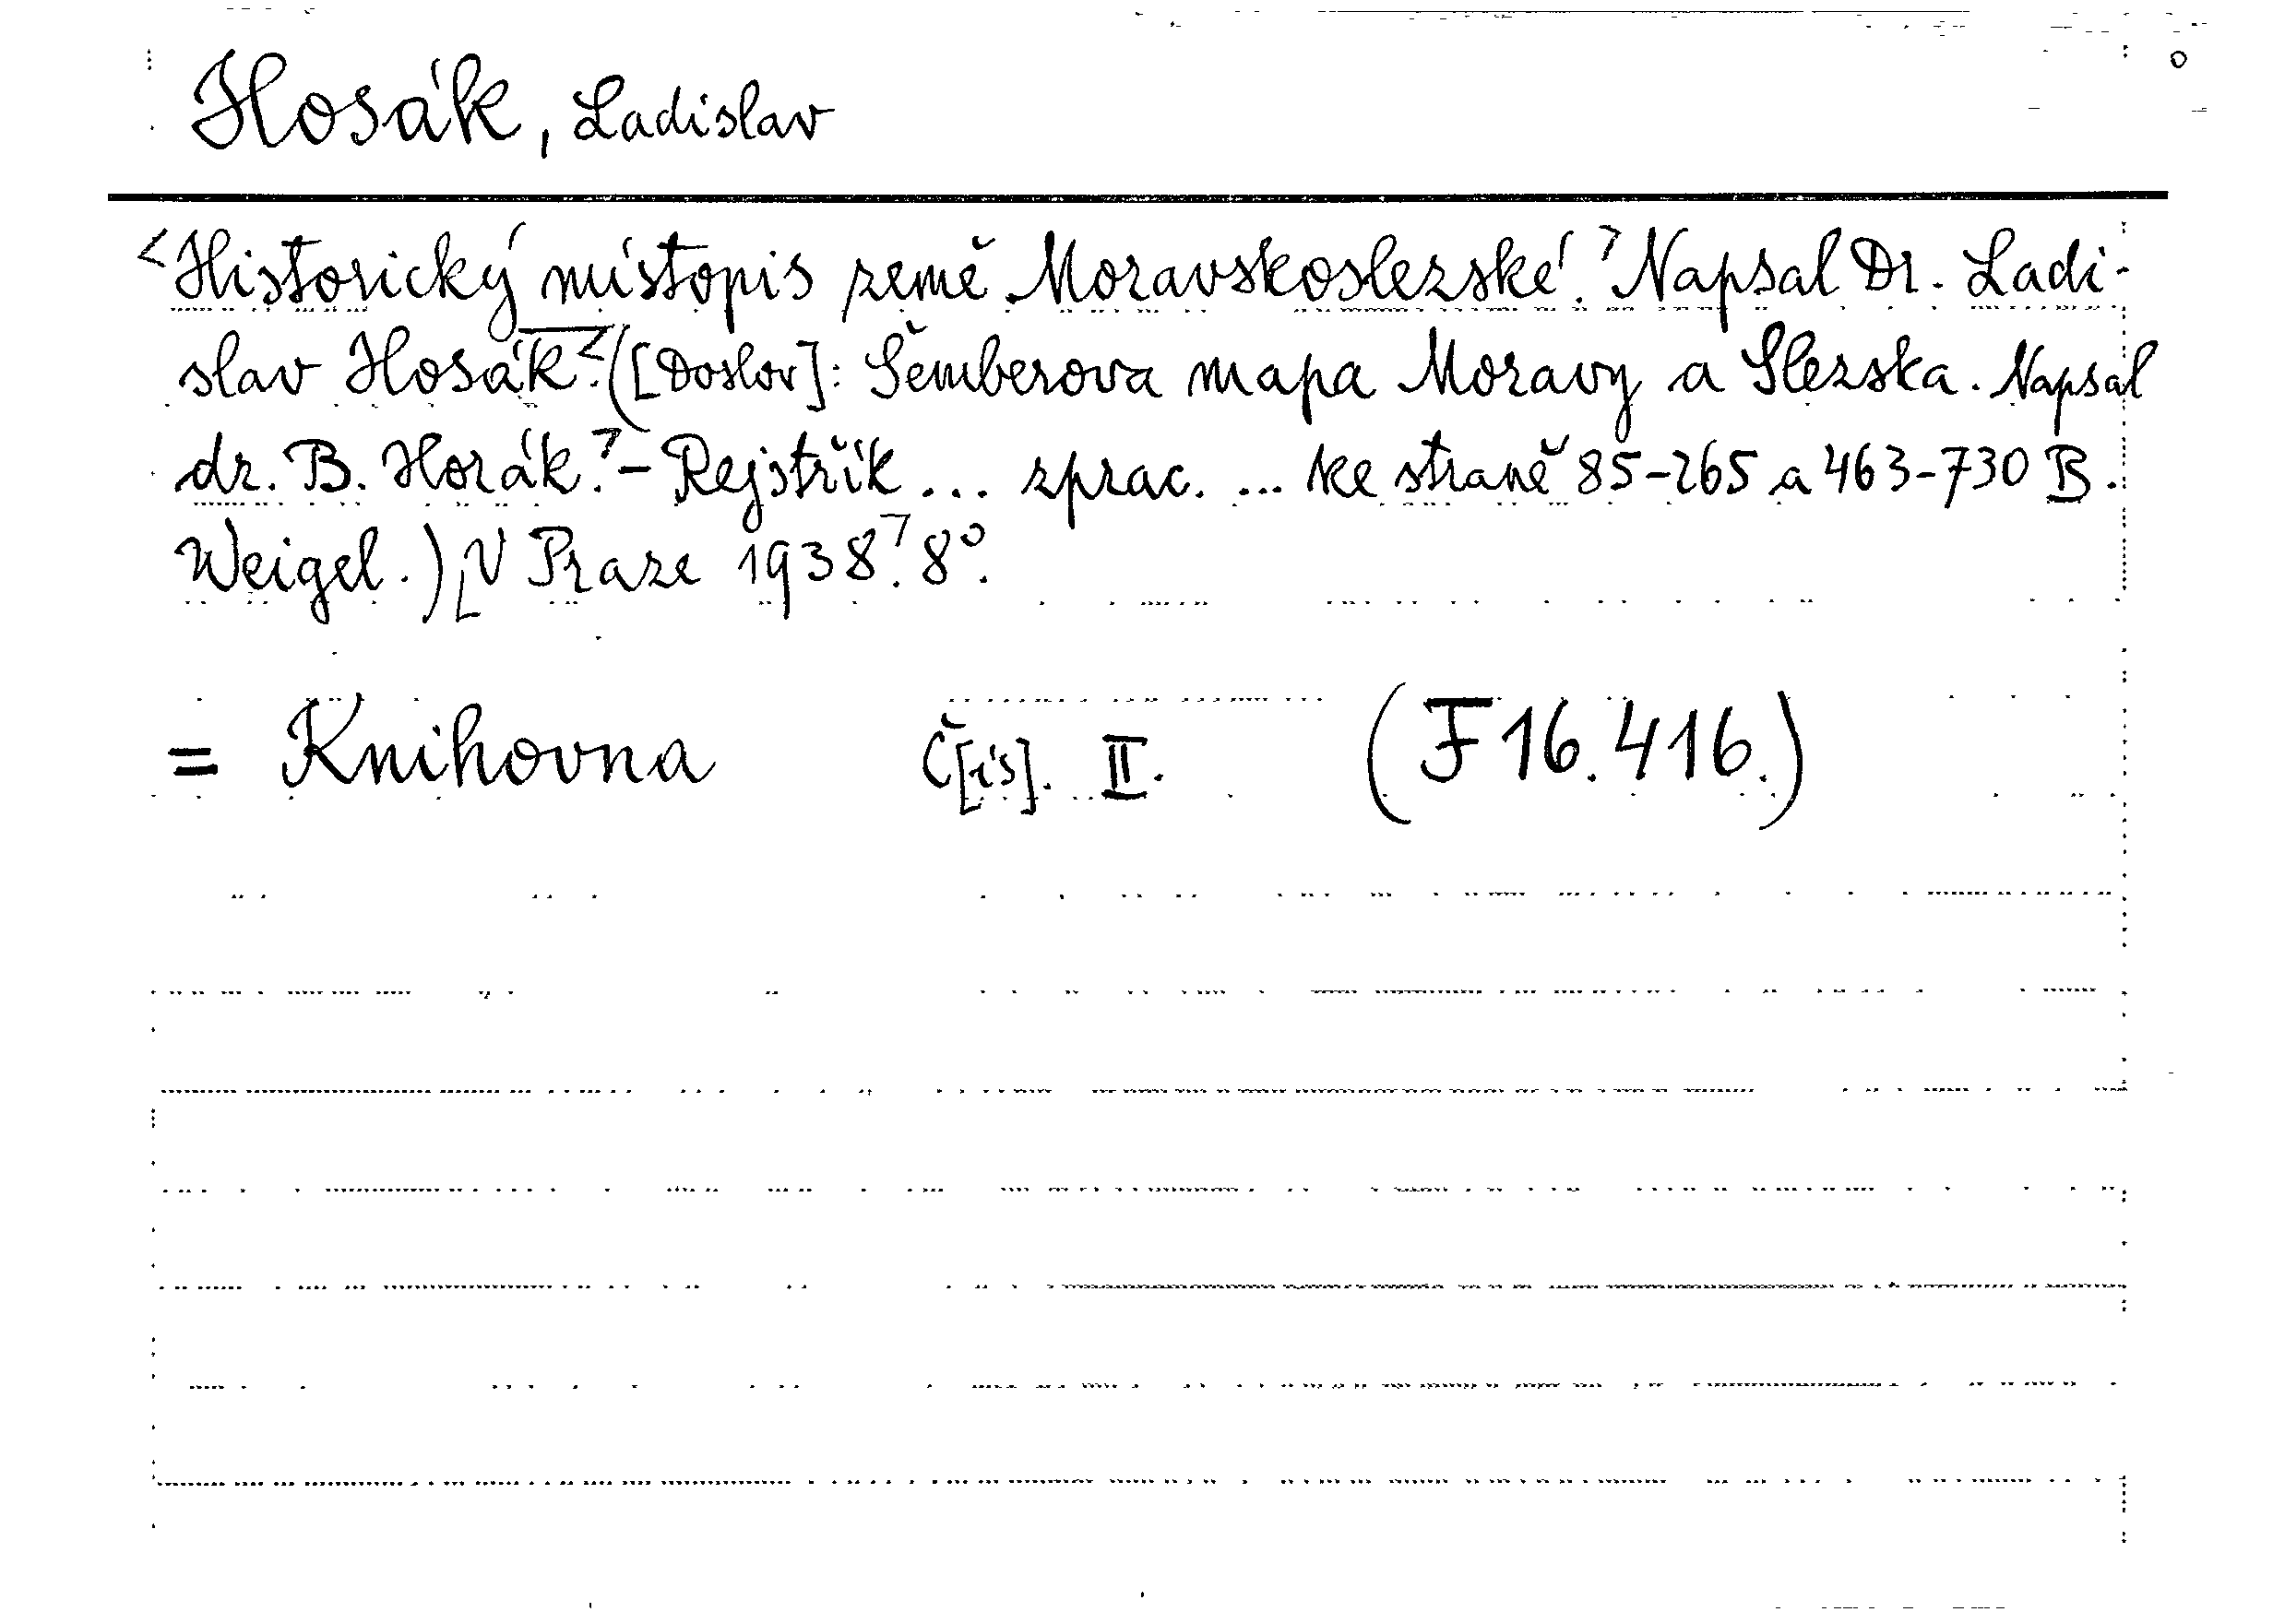 Hosák, Ladislav
<Historický místopis země Moravskoslezské.> Napsal Dr. Ladi-
slav Hosák.<([Doslov]: Šemberova mapa Moravy a Slezska. Napsal
dr. B. Horák.> - Rejstřík ... zprac. ... ke straně 85-265 a 463-730 B.
Weigel.) [V Praze 1938.] 8°.
= Knihovna Č[ís]. II. (F 16.416.)